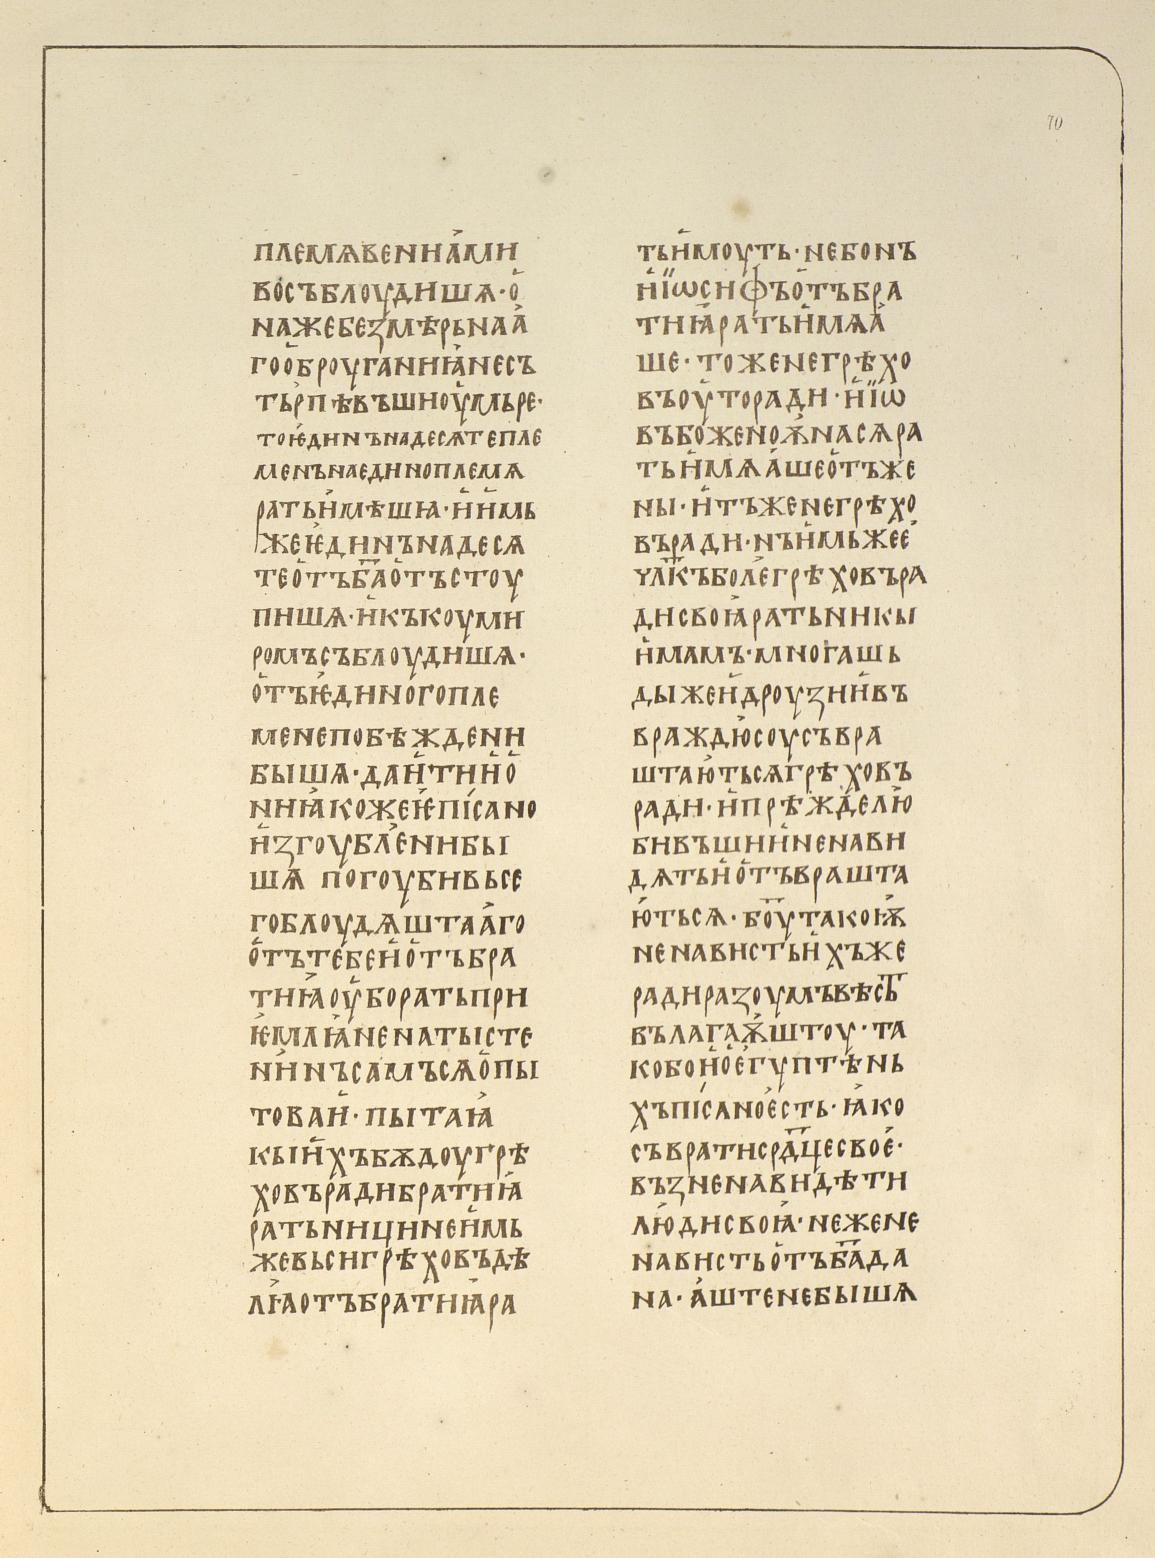 70
племѧвенна́ми
во́съблоудишѧ·о҆
нажебезмѣрьнаа́
гоо҆броуганниꙗ́несъ
тьрпѣвъшиоу҆мьре·
тоѥ́динънадесѧтепле
менънаединоплемѧ
ратьи҆мѣшꙗ·и҆и҆мь
жеѥ́динънадесѧ
тео҆тъба҃о҆тъстоу
пишѧ·и҆къкоуми
ромъсъблоудишѧ·
о҆тъѥ́диногопле
менепобѣждени
бышѧ·даи҆тиио҆
ниꙗ́кожеѥ́пі́сано
и҆згоубле́нибы
шѧ погоубивьсе
гоблоудѧштаа́го
о҆тътебеи҆о҆тъбра
тиꙗ́оу҆боратьпри
ѥ́млꙗ́ненатысте
ни́нъсамъсѧо҆пы
товаи҆·пытаꙗ́
кыи҆хъбѫдоугрѣ
ховърадибратиꙗ́
ратьницинеи҆мь
жевьсигрѣховъдѣ
лꙗ́отъбратиꙗ́ра
тьи҆моуть·небонъ
ни҆ї҆ѡсифъо҆тъбра
тиꙗ́ратьи҆мѧа́
ше·тоженегрѣхо
въоу҆торади·и҆ї҆ѡ
въбоженоѭ́насѧра
тьи҆мѧа́шео҆тъже
ны·и҆тъженегрѣхо
въради·нъи҆мьжее́
члк҃ъболе́грѣховъра
дисвоꙗ́ратьникы
и҆мамъ·многашь
дыжеи҆дроузии҆въ
враждю́соусъвра
штаю́тьсѧгрѣховъ
ради·и҆прѣждею́лю
бивъшии҆ненави
дѧтьи҆о҆тъврашта
ю́тьсѧ·бо҃утакоѭ́
ненавистьи҆хъже
радиразоумъвѣсть҃
вълагаѭ́штоу·та
кобои҆о҆е́гуптѣнь
хъпі́саное́сть·ꙗ́ко
съвратисрд҃цесвое́·
възненавидѣти
лю́дисвоꙗ́·нежене
навистьо҆тъба҃да
на·а́штенебышѧ